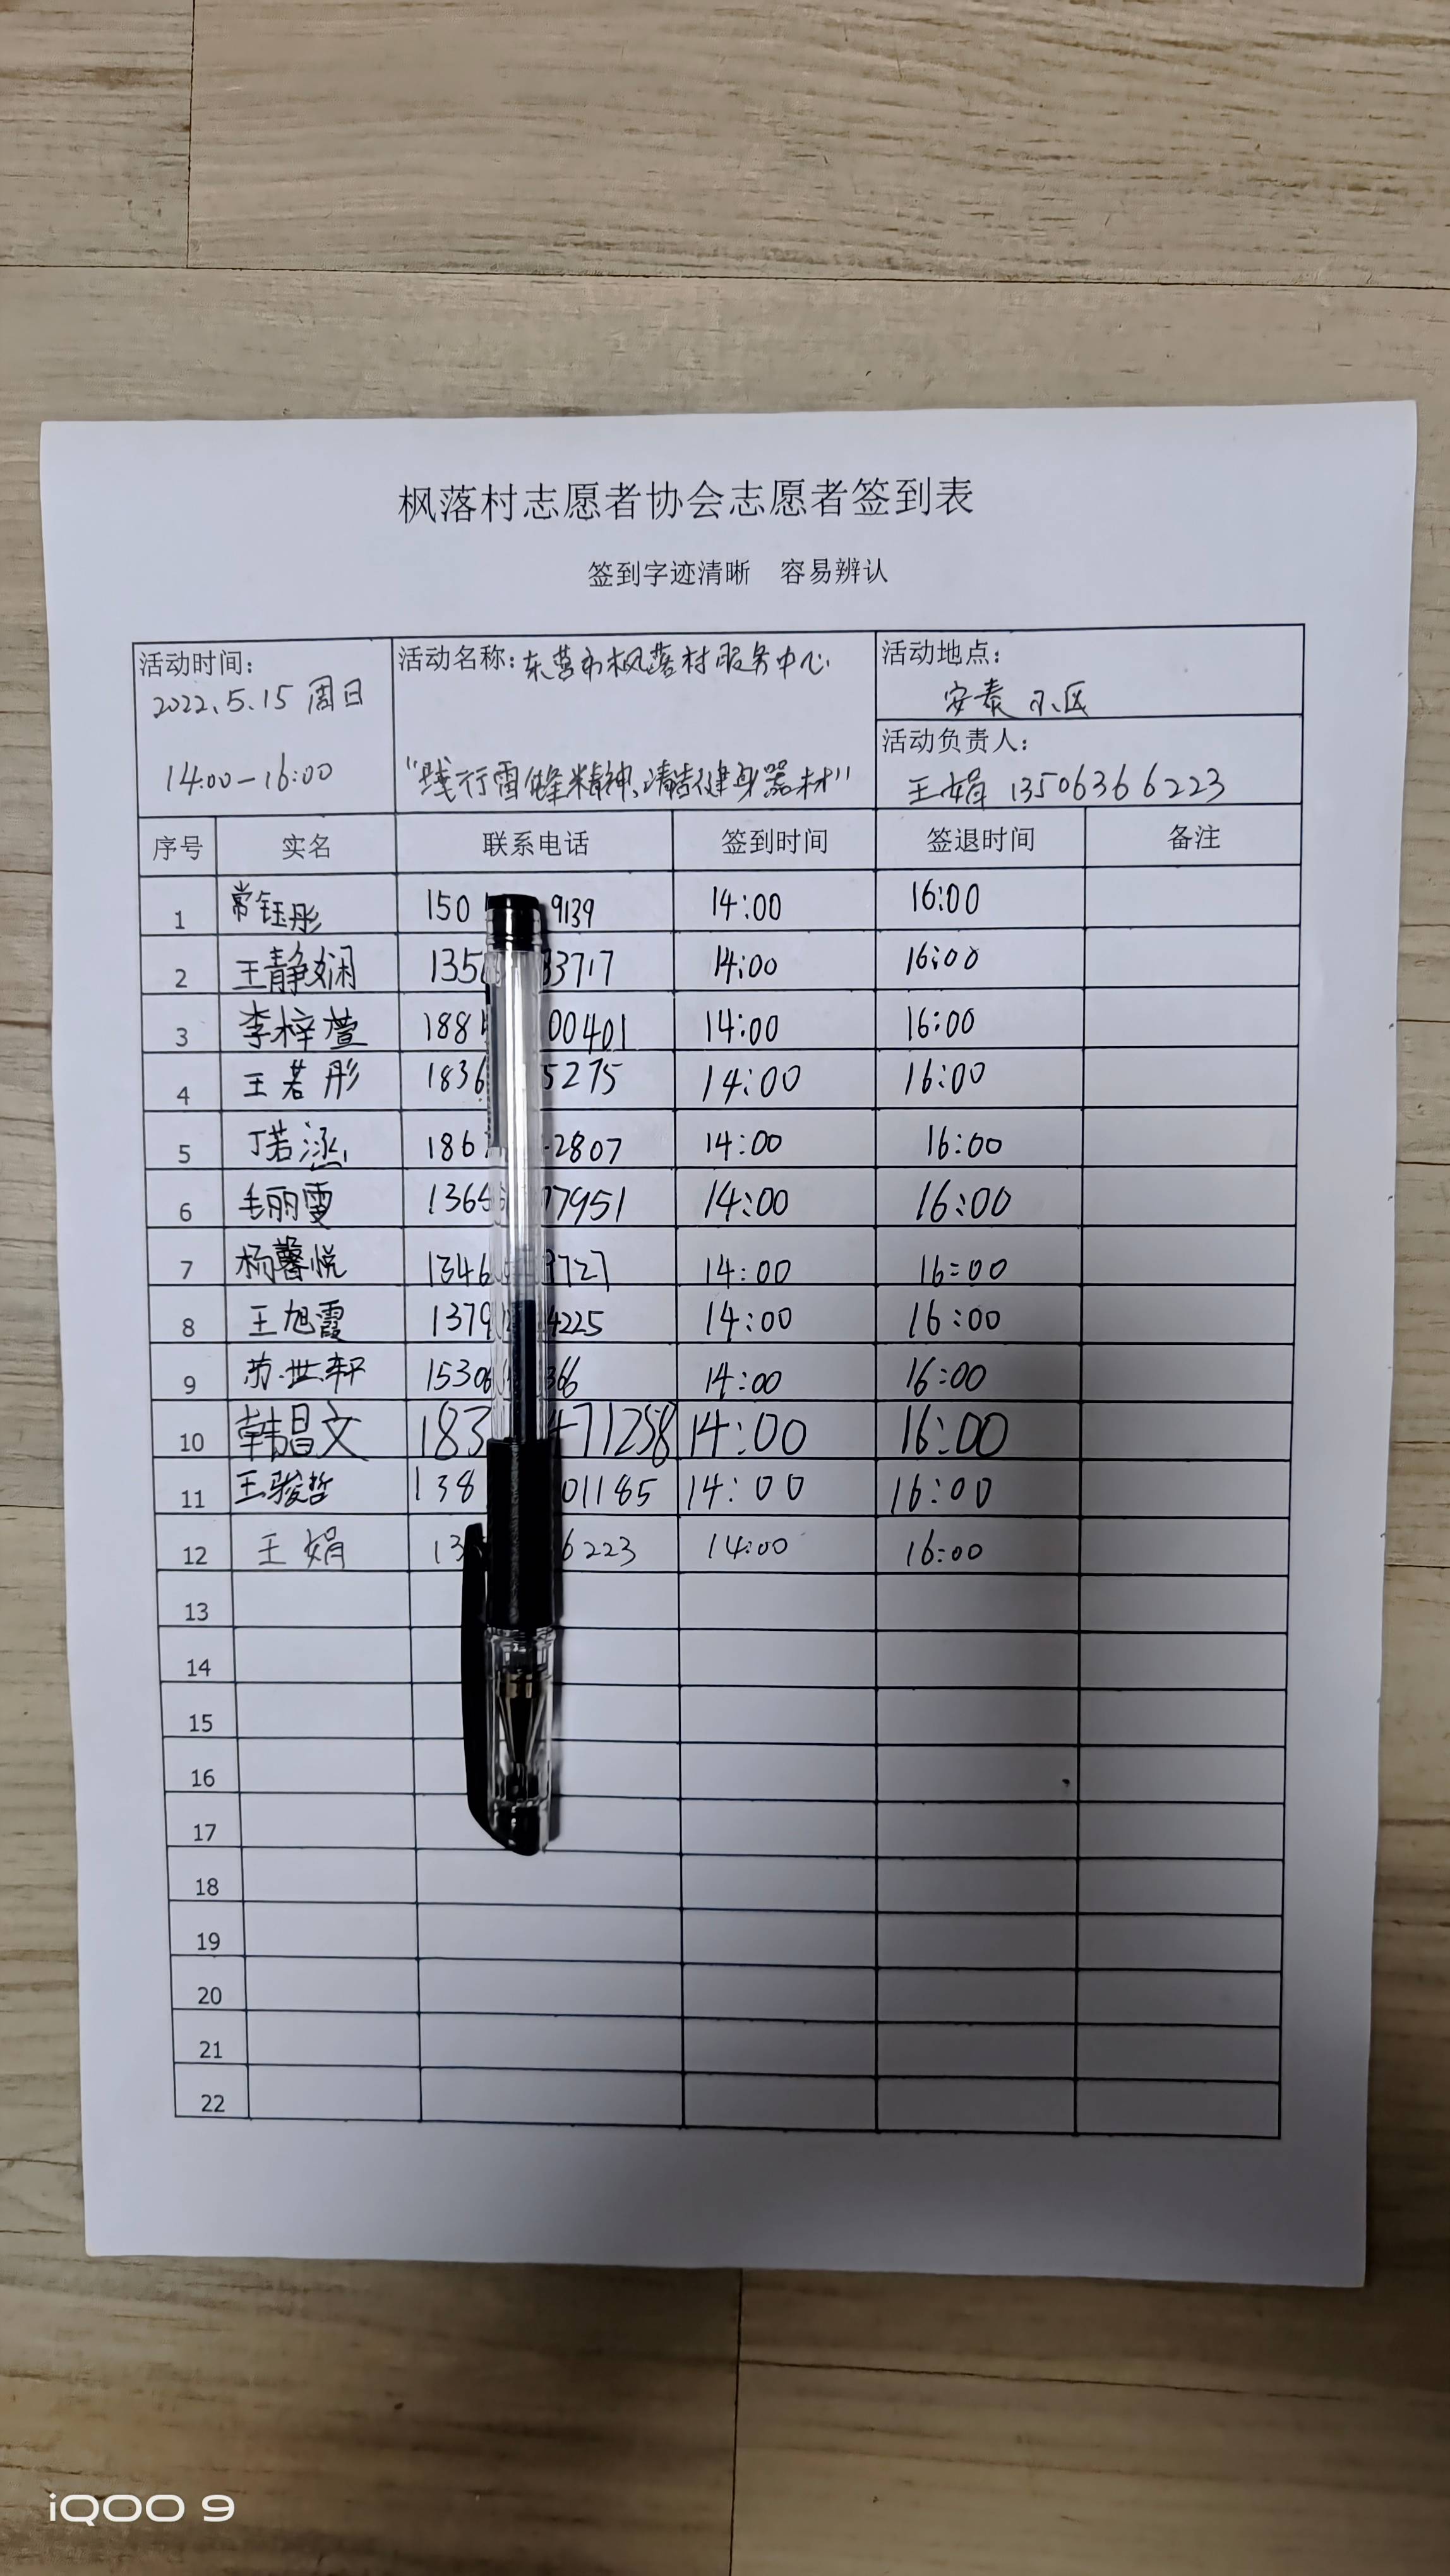 枫落村志愿者协会志愿者签到表
签到字迹清晰 容易辨认
活动时间: 2022.5.15 周日
14:00-16:00
活动名称: 东营市枫落村服务中心
"践行雷锋精神,清洁健身器材"
活动地点:
安泰小区
活动负责人:
王娟 13506366223
序号 实名 联系电话 签到时间 签退时间 备注
1 常钰彤 150 9139 14:00 16:00
2 王静娴 135 3717 14:00 16:00
3 李梓萱 188 00401 14:00 16:00
4 王若彤 1836 5275 14:00 16:00
5 丁若涵 186 2807 14:00 16:00
6 毛丽雯 136 7951 14:00 16:00
7 杨馨悦 1346 727 14:00 16:00
8 王旭霞 1379 4225 14:00 16:00
9 苏世轩 1530 366 14:00 16:00
10 韩昌文 183 471258 14:00 16:00
11 王骏哲 138 01185 14:00 16:00
12 王娟 13 6223 14:00 16:00
13
14
15
16
17
18
19
20
21
22
iQOO 9